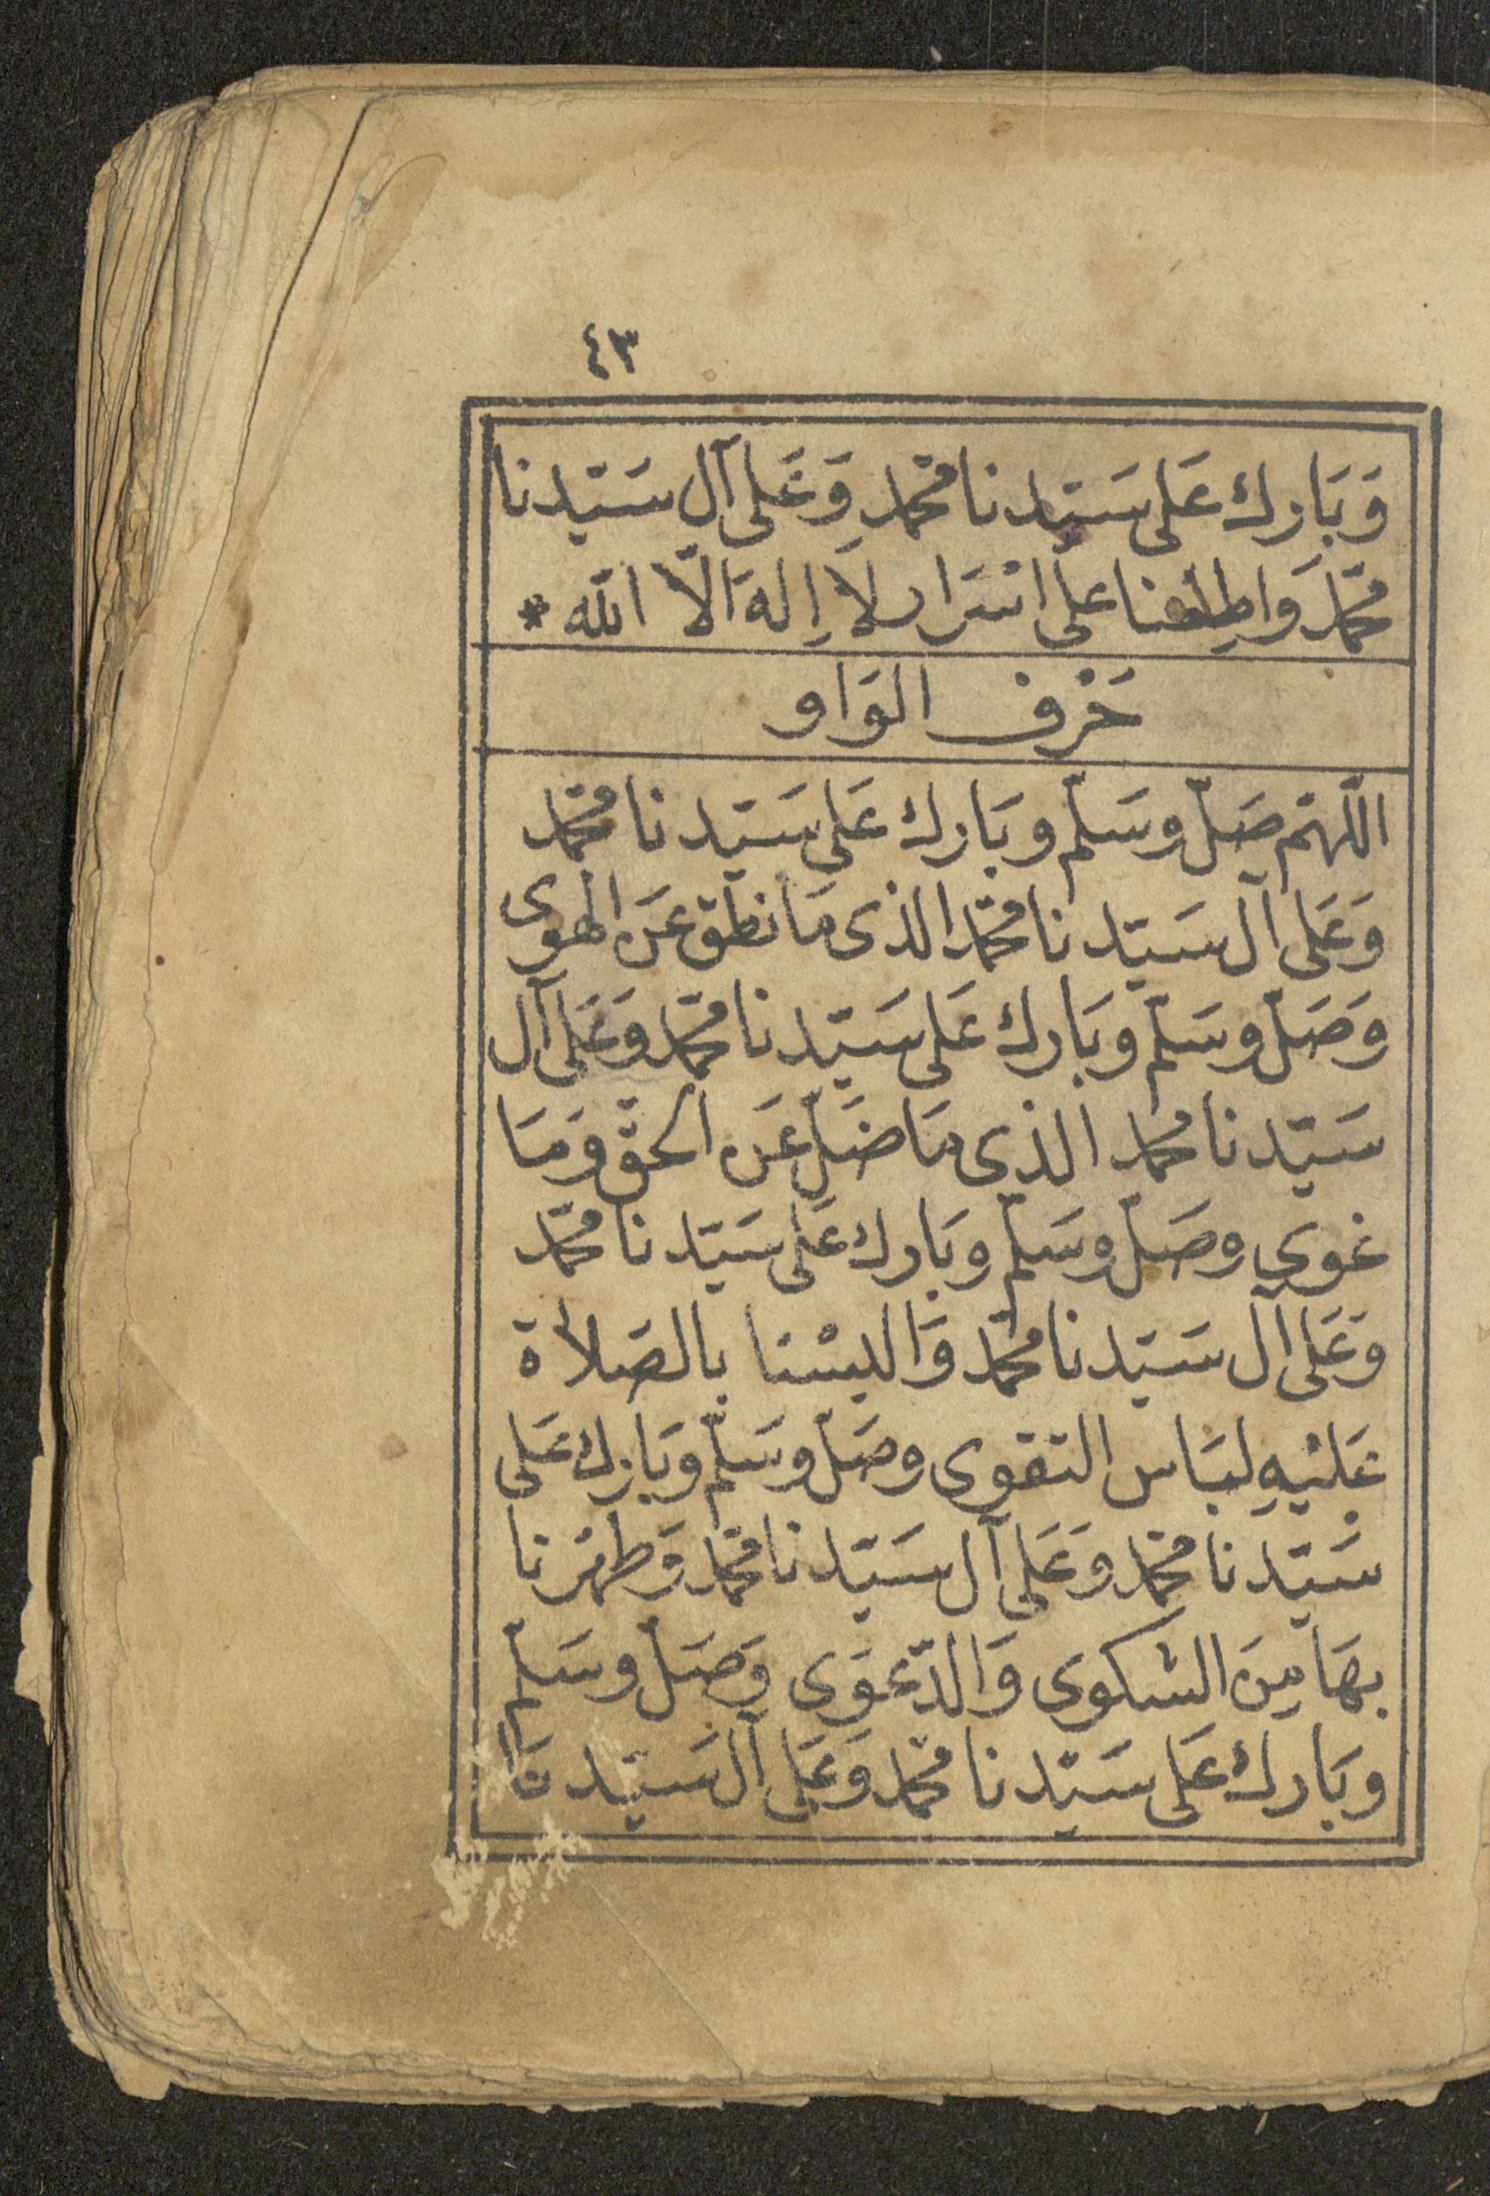 ٤٣
وَبَارك عَلى سَيّدنا محمّد وَعَلى آل سَيّدنا
محمّد وَاطلِعنا على اسْرَار لاَ اِلهَ الاّ اللّه *
حَرْف الوَاو
اللّهمّ صَلّ وسَلّم وبَارك عَلى سَيّدنا محمّد
وَعَلى آل سَيّدنا محمّد الذى مَا نطق عَن الهوى
وَصَلّ وسَلّم وبَارك عَلى سَيّدنا محمّد وَعَلى آل
سَيّدنا محمد الذى مَا ضَلّ عَن الحقّ وَمَا
غوى وصَلّ وسَلّم وبَارك عَلى سَيّدنا محمّد
وَعَلى آل سَيّدنا محمّد وَالبسْنا بالصَلاة
عَليْهِ لبَاس التقوى وصَلّ وسَلّم وبَارك عَلى
سَيّدنا محمّد وَعَلى آل سَيّدنا محمّد وَطهّرنا
بهَا مِنَ الشكوى وَالدّعوَى وَصَلّ وسَلّم
وبَارك عَلى سَيّدنا محمّد وَعَلى آل سَيّدنَا